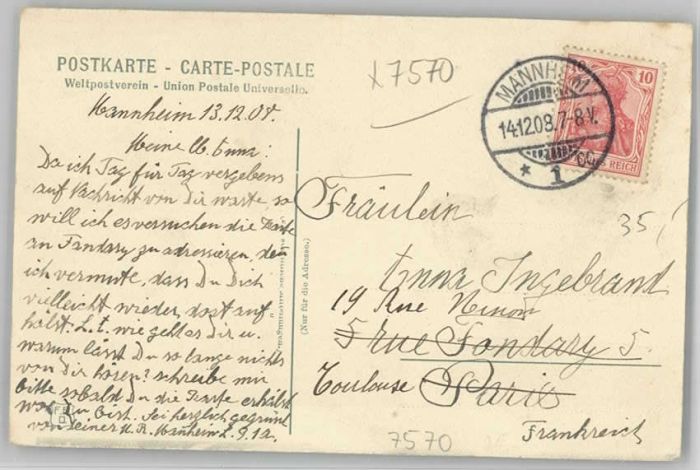 POSTKARTE - CARTE-POSTALE
Weltpostverein - Union Postale Universelle.
x7570
MANNHEIM
14.12.08.7-8V.
* 1
10
REICH
Mannheim 13.12.08.
Meine lb. Anna:
Da ich Tag für Tag vergebens
auf Nachricht von Dir warte so
will ich es versuchen die Karte
an Fondary zu adressieren, den
ich vermute, dass Du Dich
vielleicht wieder dort auf
hälst. wie geht es Dir u.
warum lässt Du so lange nichts
von Dir hören? schreibe mir
bitte sobald Du die Karte erhälst
wo Du bist. Sei herzlich gegrüsst
von Deiner
(Nur für die Adresse.)
Fräulein
35,
Anna Ingebrand
19 Rue Ninon
5 rue Fondary 5.
Toulouse Paris
Frankreich
7570